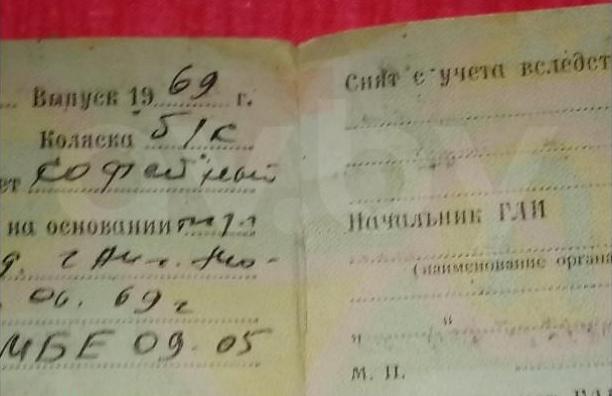 Выпуск 19 69 г.
Коляска б/к
ет кофейный
на основании
06. 69 г
МБЕ 09.05
Снят с учета вследст
Начальник ГАИ
(наименование органа
" "
М. П.